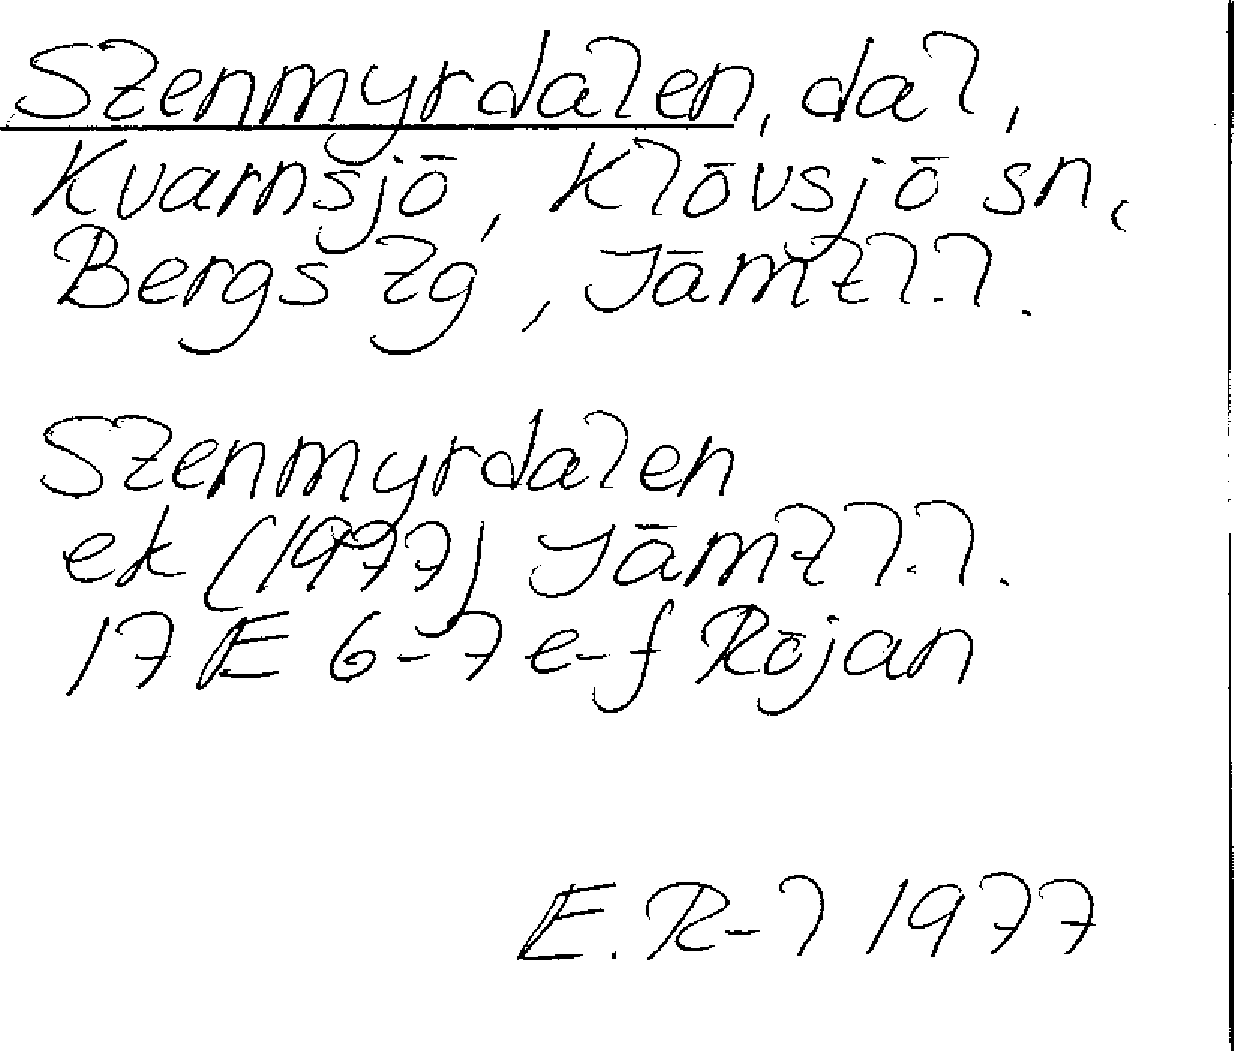 Stenmyrdalen, dal,
Kvarnsjö, Klövsjö sn,
Bergs tg, Jämtl.l.
Stenmyrdalen
ek (1977) Jämtl.l.
17 E 6-7 e-f Röjan
E. R-l 1977